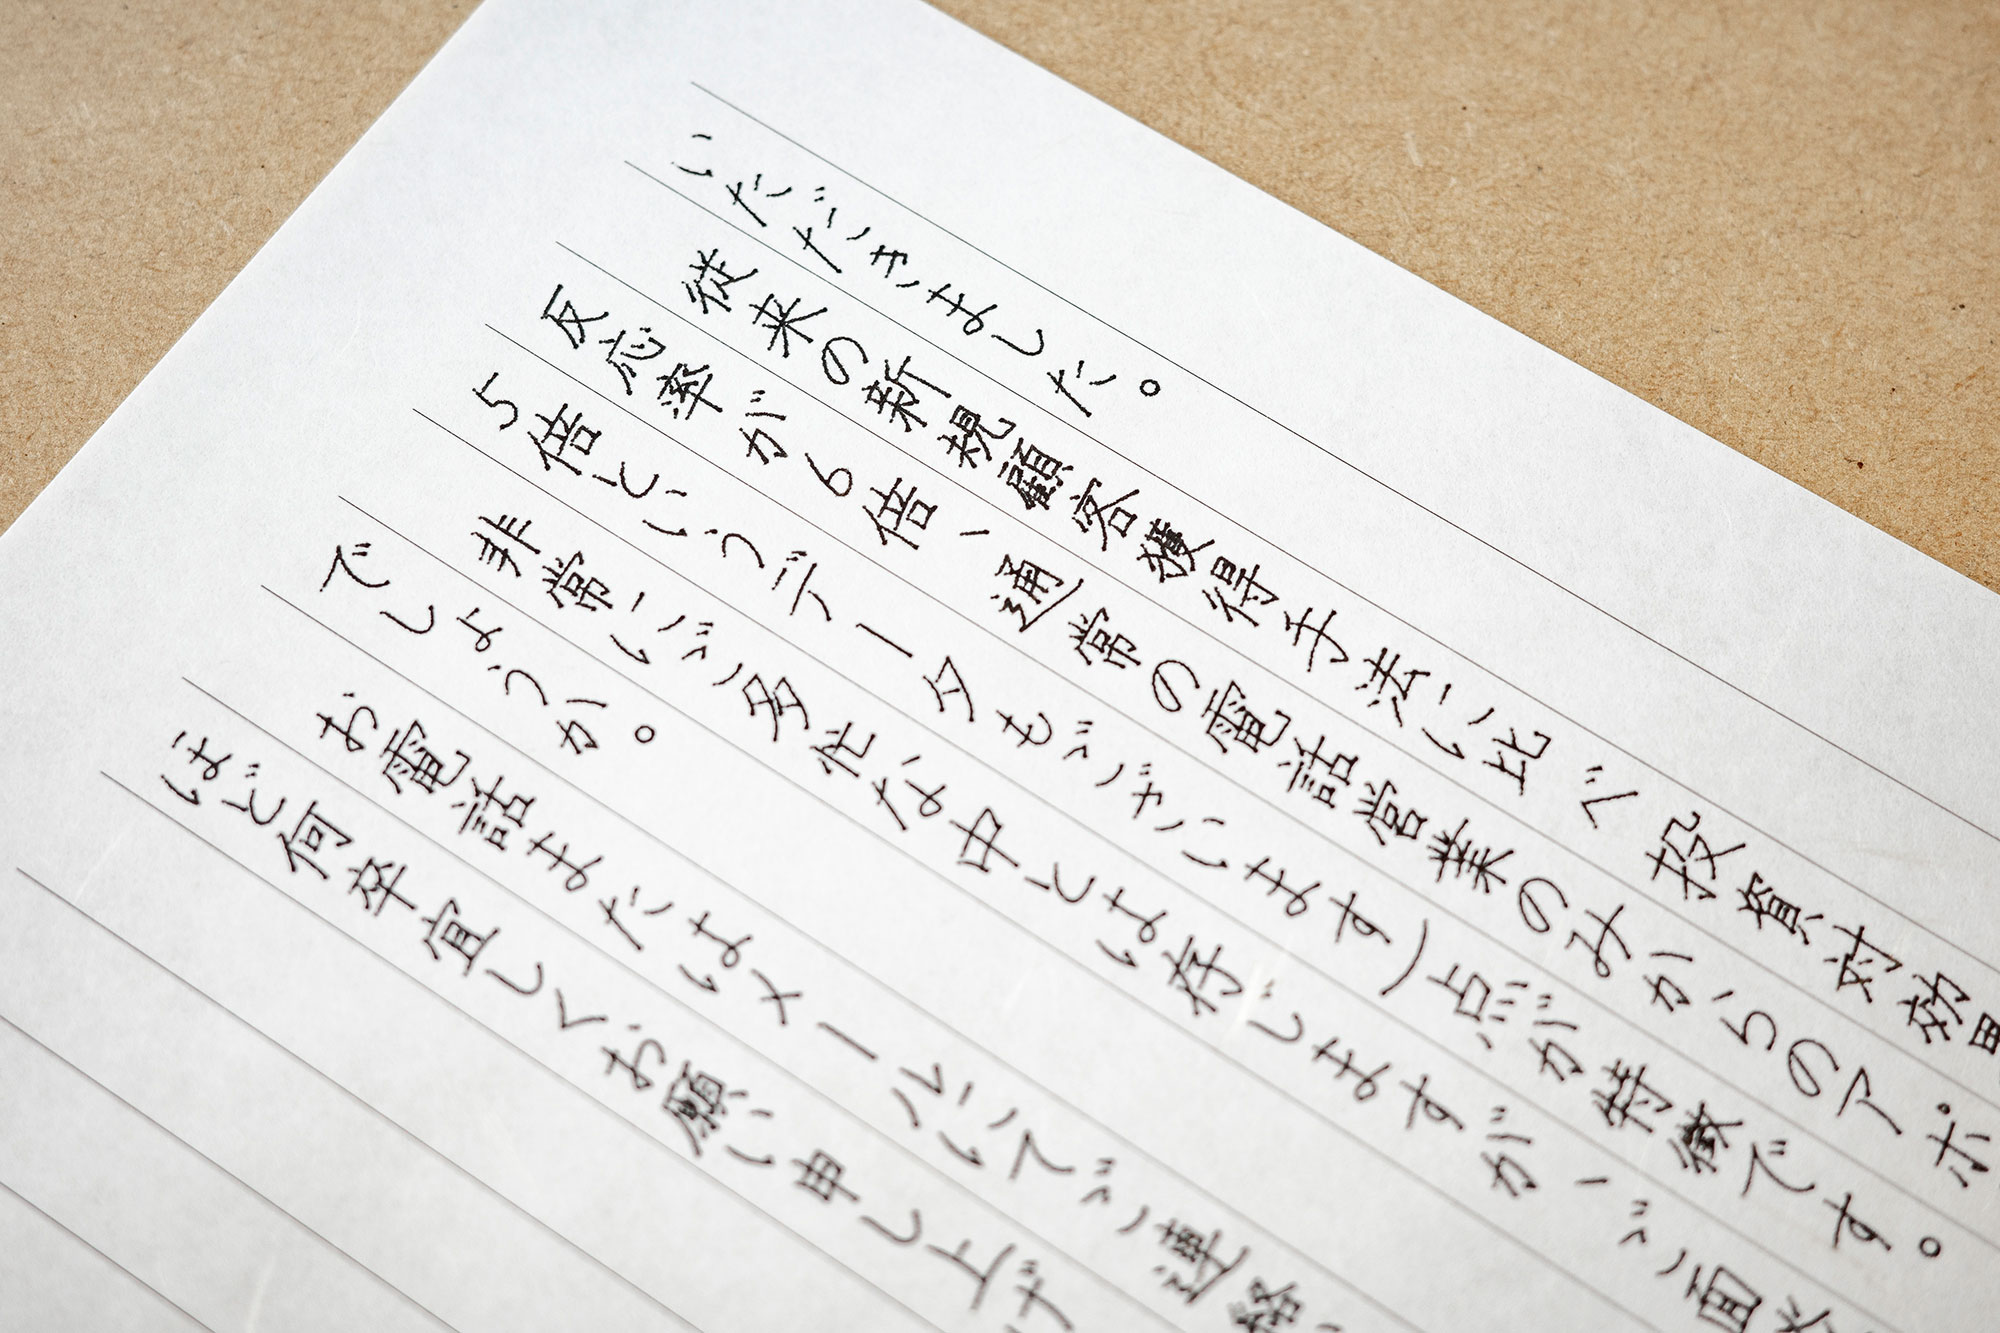 いただきました。
従来の新規顧客獲得手法に比べ投資対効果
反応率が6倍、通常の電話営業のみから5のアポ
5倍というデータもございます)点が特徴です。
非常にご多忙な中とは存じますが、ご面
でしょうか。
お電話またはメールにてご連絡
ほど何卒宜しくお願い申し上げ